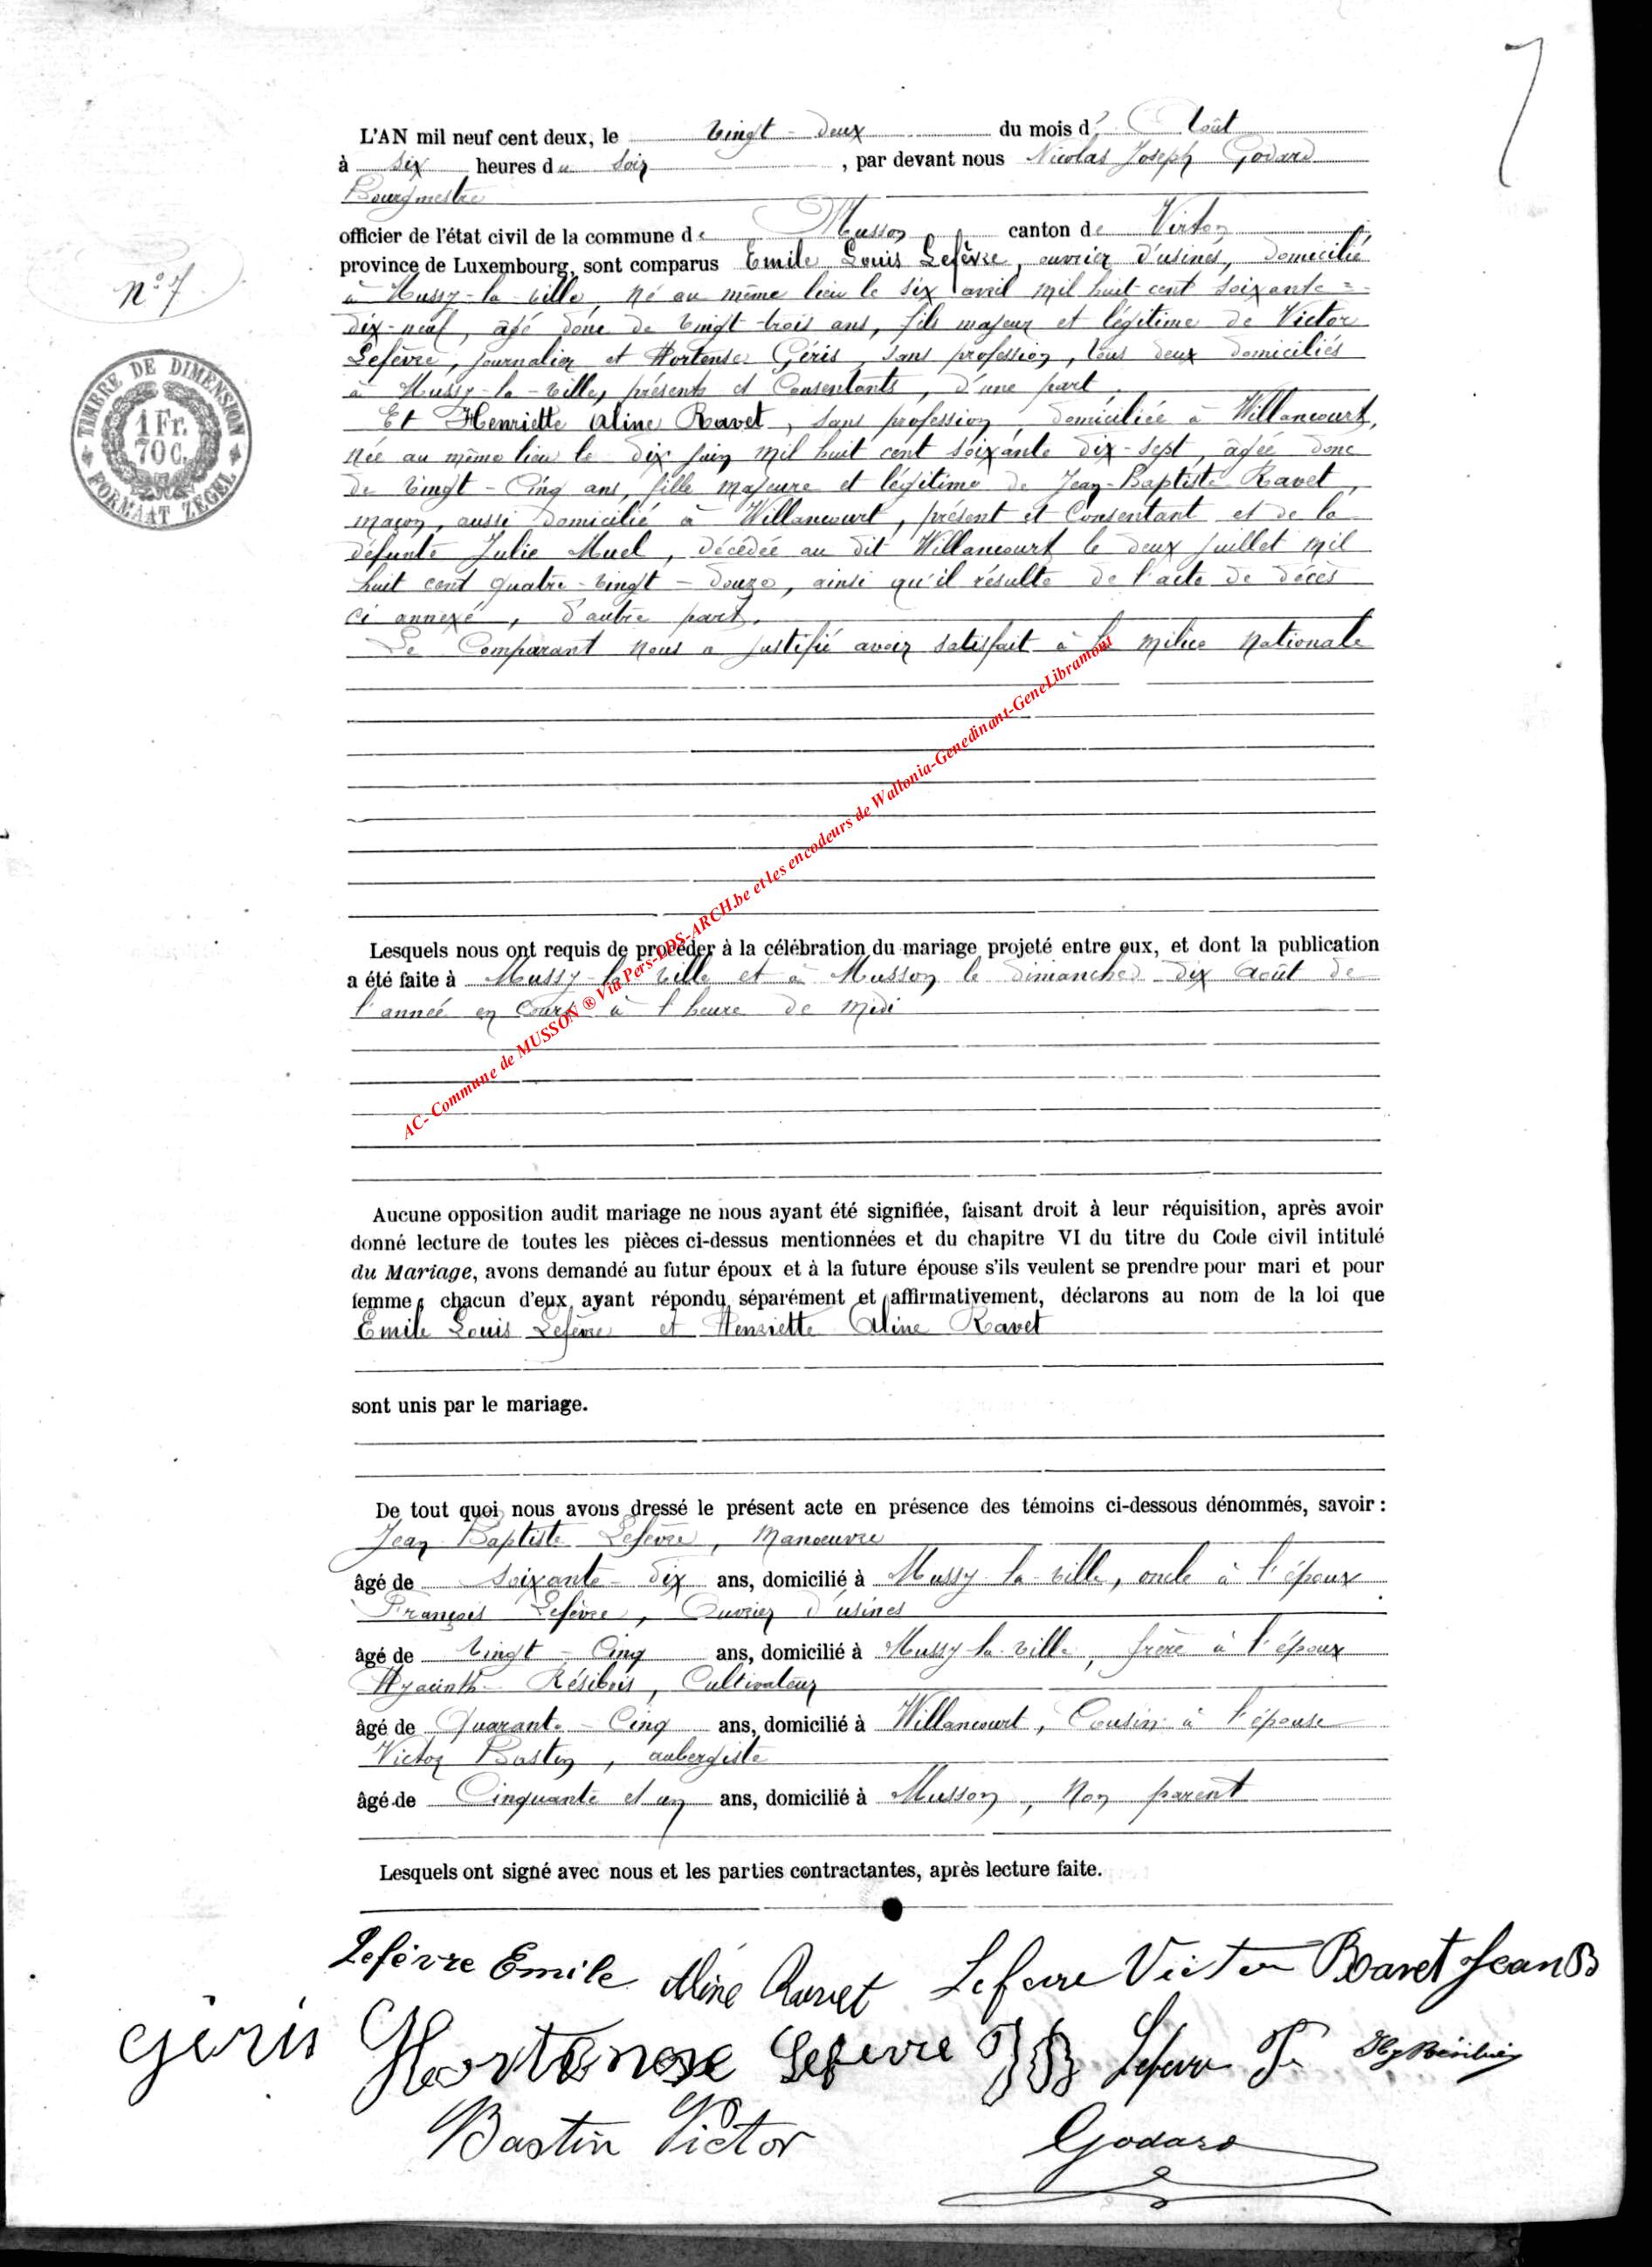 7
L'AN mil neuf cent deux, le vingt-deux du mois d' Août
à six heures du soir, par devant nous Nicolas Joseph Godard
Bourgmestre
officier de l'état civil de la commune de Musson canton de Virton
province de Luxembourg, sont comparus Emile Louis Lefèvre, ouvrier d'usines, domicilié
n° 7
à Mussy-la-ville, né au même lieu le six avril mil huit cent soixante-
dix-neuf, âgé donc de vingt-trois ans, fils majeur et légitime de Victor
Lefèvre, journalier et Hortense Géris, sans profession, tous deux domiciliés
à Mussy-la-ville, présents et consentants, d'une part.
TIMBRE DE DIMENSION
1 Fr.
70 C.
FORMAAT ZEGEL
Et Henriette Aline Ravet, sans profession, domiciliée à Willancourt,
née au même lieu le dix juin mil huit cent soixante dix-sept, âgée donc
de vingt-cinq ans, fille majeure et légitime de Jean-Baptiste Ravet,
maçon, aussi domicilié à Willancourt, présent et consentant et de la
défunte Julie Muel, décédée au dit Willancourt le deux juillet mil
huit cent quatre-vingt-douze, ainsi qu'il résulte de l'acte de décès
ci annexé, d'autre part.
Le comparant nous a justifié avoir satisfait à la milice nationale
AC- Commune de MUSSON ® Via Pers-LDS-ARCH.be et les encodeurs de Wallonia-Genedinant-GeneLibramont
Lesquels nous ont requis de procéder à la célébration du mariage projeté entre eux, et dont la publication
a été faite à Mussy-la-ville et à Musson le dimanche dix août de
l'année en cours à l'heure de midi
Aucune opposition audit mariage ne nous ayant été signifiée, faisant droit à leur réquisition, après avoir
donné lecture de toutes les pièces ci-dessus mentionnées et du chapitre VI du titre du Code civil intitulé
du Mariage, avons demandé au futur époux et à la future épouse s'ils veulent se prendre pour mari et pour
femme, chacun d'eux ayant répondu séparément et affirmativement, déclarons au nom de la loi que
Emile Louis Lefèvre et Henriette Aline Ravet
sont unis par le mariage.
De tout quoi nous avons dressé le présent acte en présence des témoins ci-dessous dénommés, savoir :
Jean Baptiste Lefèvre, manoeuvre
âgé de soixante-dix ans, domicilié à Mussy-la-ville, oncle à l'époux
François Lefèvre, ouvrier d'usines
âgé de vingt-cinq ans, domicilié à Mussy-la-ville, frère à l'époux
Hyacinthe Résibois, cultivateur
âgé de quarante-cinq ans, domicilié à Willancourt, cousin à l'épouse
Victor Bastin, aubergiste
âgé de cinquante et un ans, domicilié à Musson, non parent
Lesquels ont signé avec nous et les parties contractantes, après lecture faite.
Lefèvre Emile Aline Ravet Lefevre Victor Ravet Jean B
Géris Hortense Lefevre J B Lefevre F Hy Résibois
Bastin Victor Godard